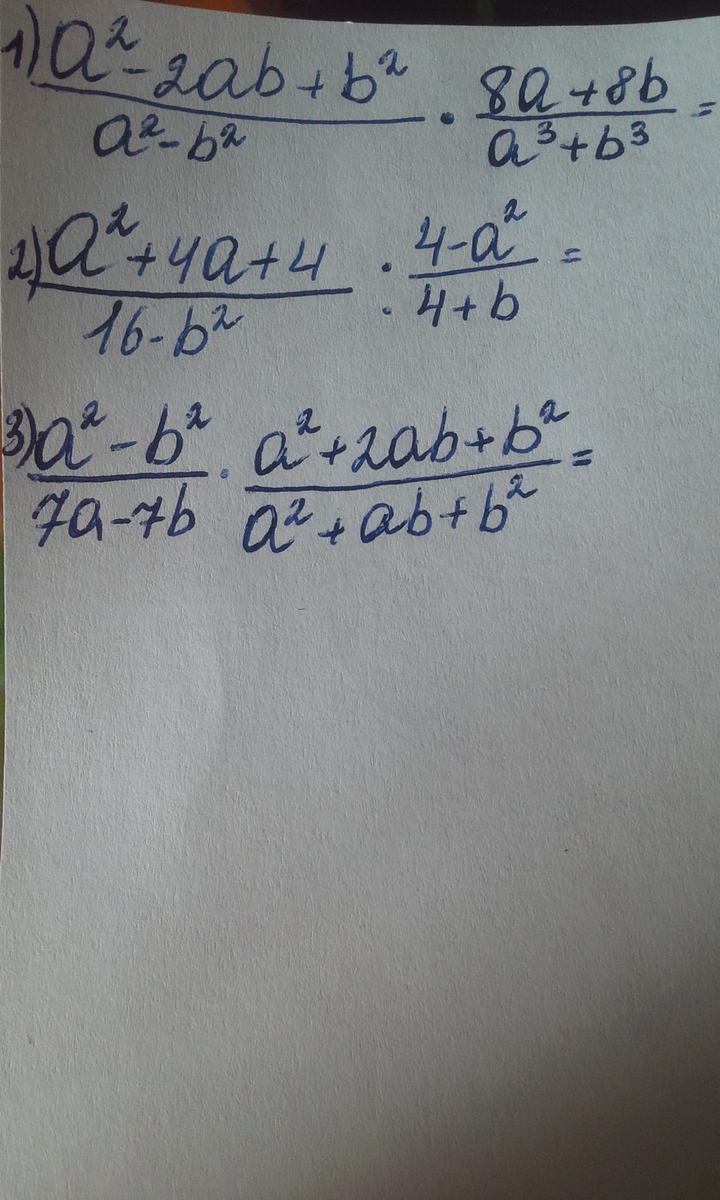 1) (a² - 2ab + b²)/(a² - b²) · (8a + 8b)/(a³ + b³) =
2) (a² + 4a + 4)/(16 - b²) : (4 - a²)/(4 + b) =
3) (a² - b²)/(7a - 7b) · (a² + 2ab + b²)/(a² + ab + b²) =